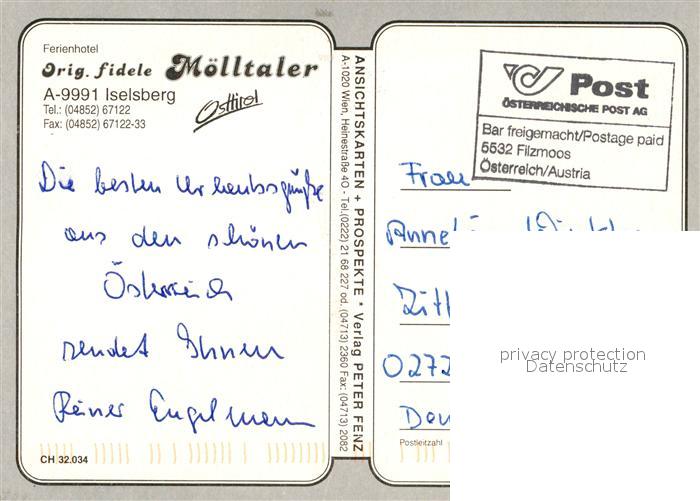 Ferienhotel
Orig. fidele Mölltaler
A-9991 Iselsberg
Tel.: (04852) 67122
Fax: (04852) 67122-33
Osttirol
Die besten Urlaubsgrüße
aus dem schönen
Österreich
sendet Ihnen
Reiner Engelmann
CH 32.034
ANSICHTSKARTEN + PROSPEKTE * Verlag PETER FENZ
A-1020 Wien, Heinestraße 40 - Tel.(0222) 21 68 227 od. (04713) 2360 Fax: (04713) 2082
Post
ÖSTERREICHISCHE POST AG
Bar freigemacht/Postage paid
5532 Filzmoos
Österreich/Austria
Frau
Zitt
0272
Postleitzahl
privacy protection
Datenschutz